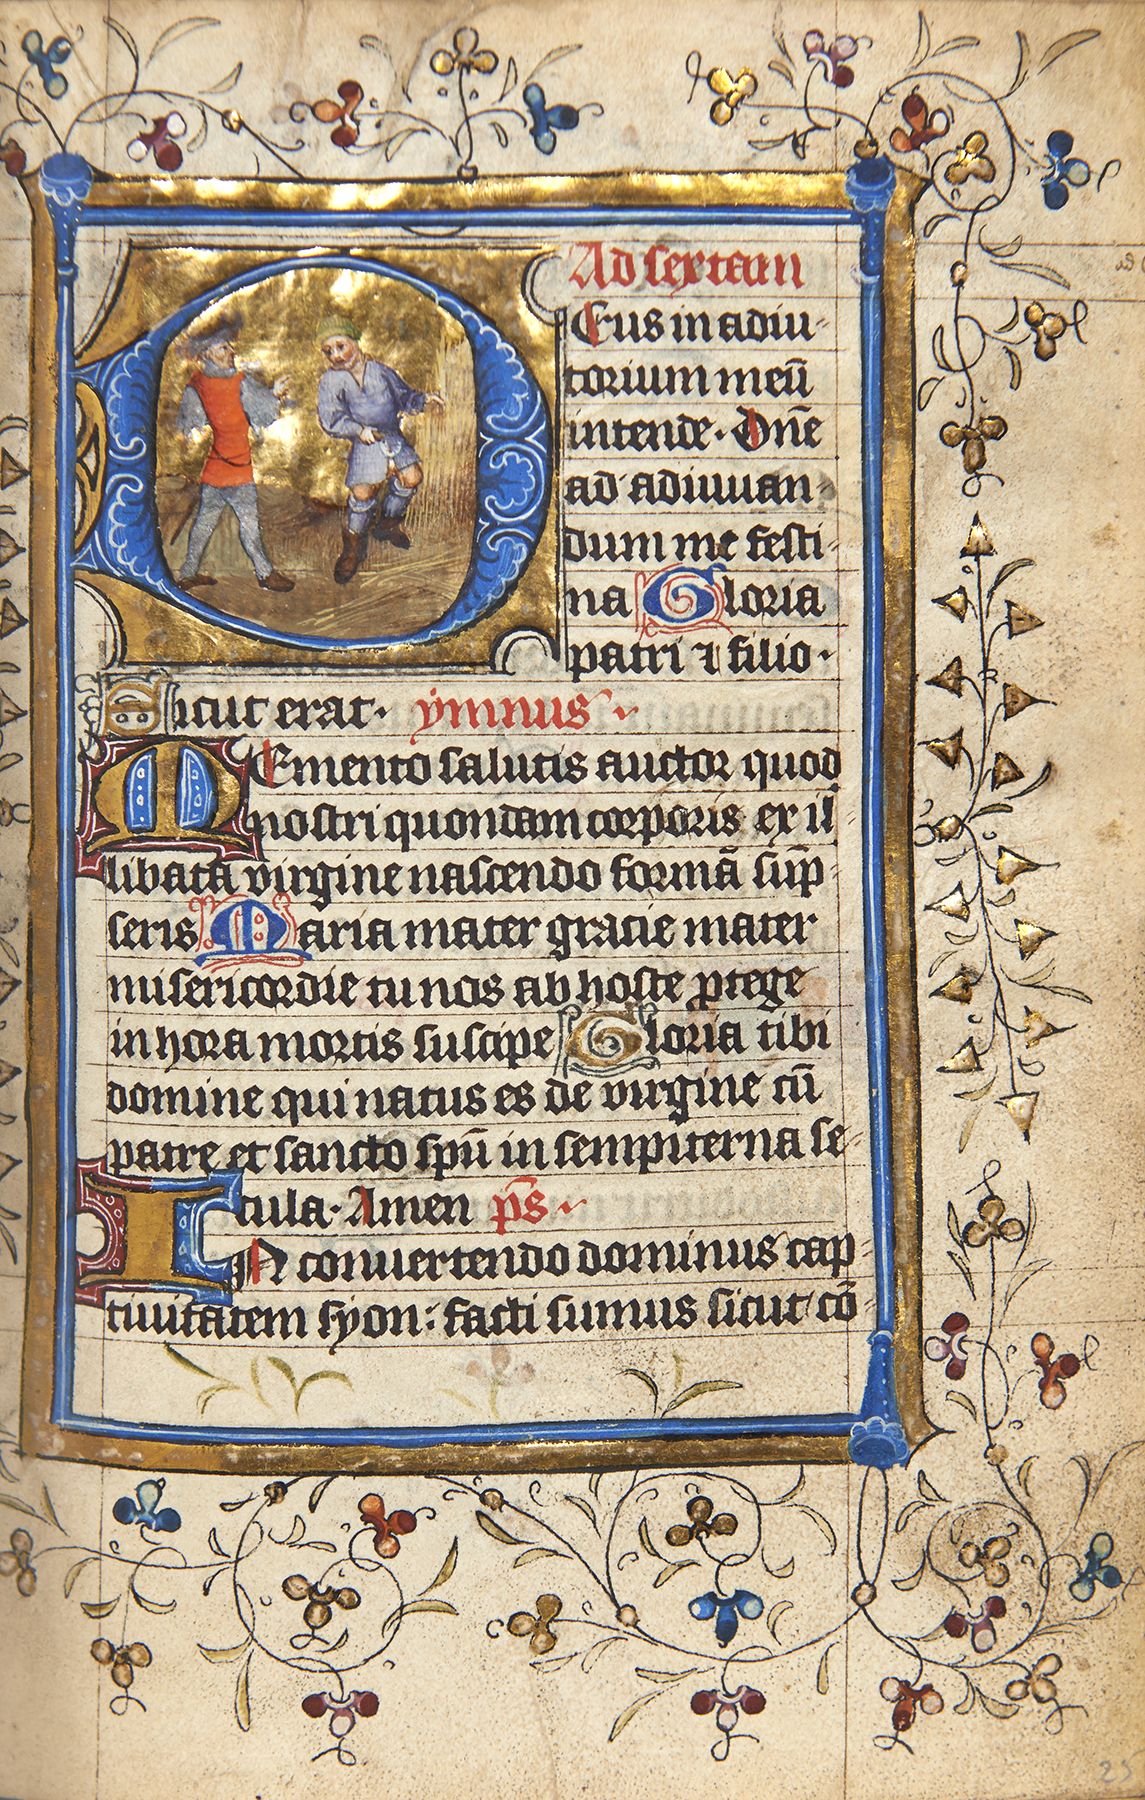 Ad sextam
Eus in adiu-
torium meū
intende. Dn̄e
ad adiuuan-
dum me festi-
na Gloria
patri ⁊ filio.
Sicut erat. ymnus
Memento salutis auctor quod
nostri quondam corporis ex il-
libata virgine nascendo formā sūp-
seris Maria mater gracie mater
misericordie tu nos ab hoste ꝓtege
in hora mortis suscipe Gloria tibi
domine qui natus es de virgine cū
patre et sancto spū in sempiterna se-
cula. Amen ps̄
In conuertendo dominus cap-
tiuitatem syon: facti sumus sicut cō-
25